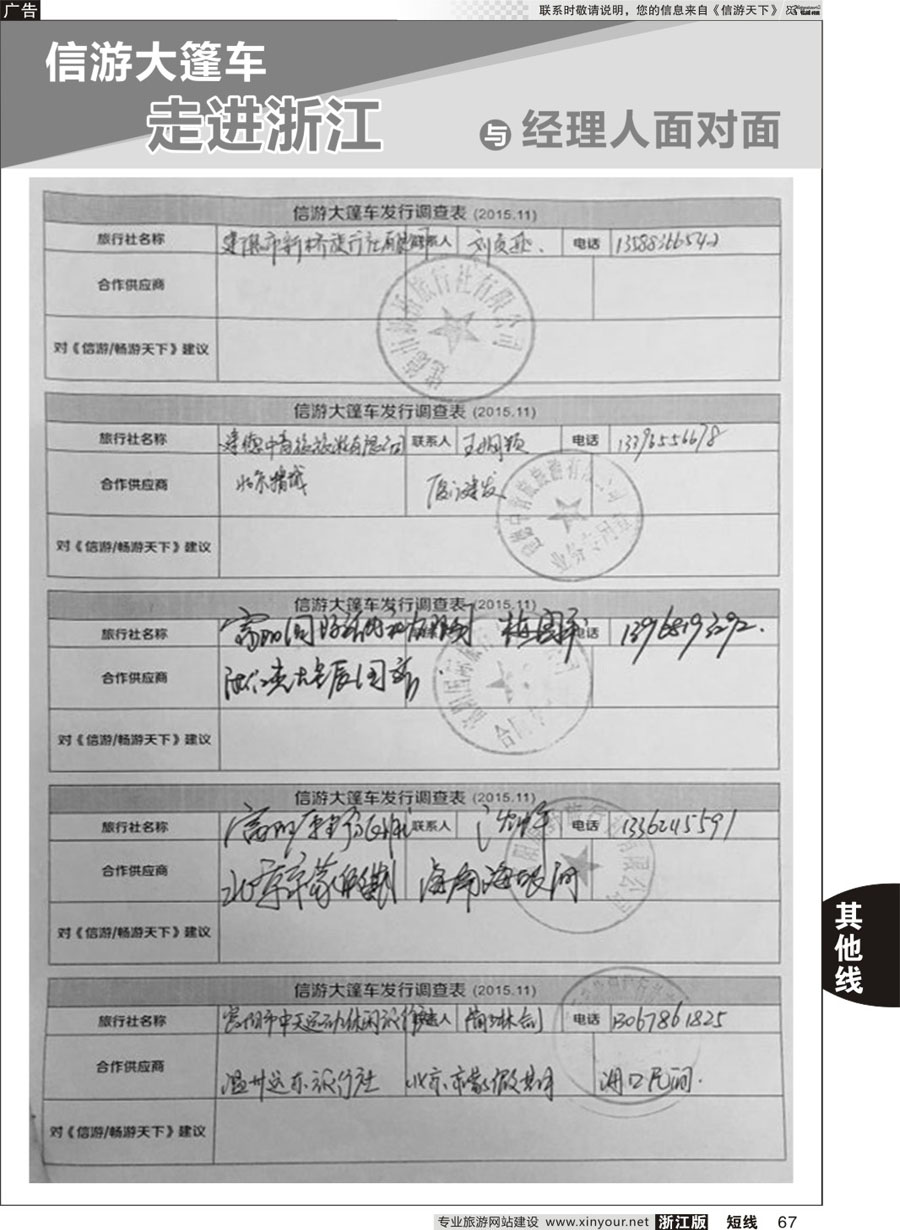 广告
联系时敬请说明，您的信息来自《信游天下》
信游大篷车
走进浙江
与 经理人面对面
信游大篷车发行调查表 (2015.11)
旅行社名称 联系人 电话 13588366542
合作供应商
对《信游/畅游天下》建议
信游大篷车发行调查表 (2015.11)
旅行社名称 建德中青旅旅游有限公司 联系人 电话 13396556678
合作供应商 厦门建发
对《信游/畅游天下》建议
信游大篷车发行调查表 (2015.11)
旅行社名称 电话 13968193292.
合作供应商
对《信游/畅游天下》建议
信游大篷车发行调查表 (2015.11)
旅行社名称 联系人 电话 13362145591
合作供应商 海南海银河
对《信游/畅游天下》建议
信游大篷车发行调查表 (2015.11)
旅行社名称 富阳市中天运动休闲旅行社 电话 13067861825
合作供应商 温州远东旅行社 海口民间.
对《信游/畅游天下》建议
其他线
专业旅游网站建设 www.xinyour.net 浙江版 短线 67